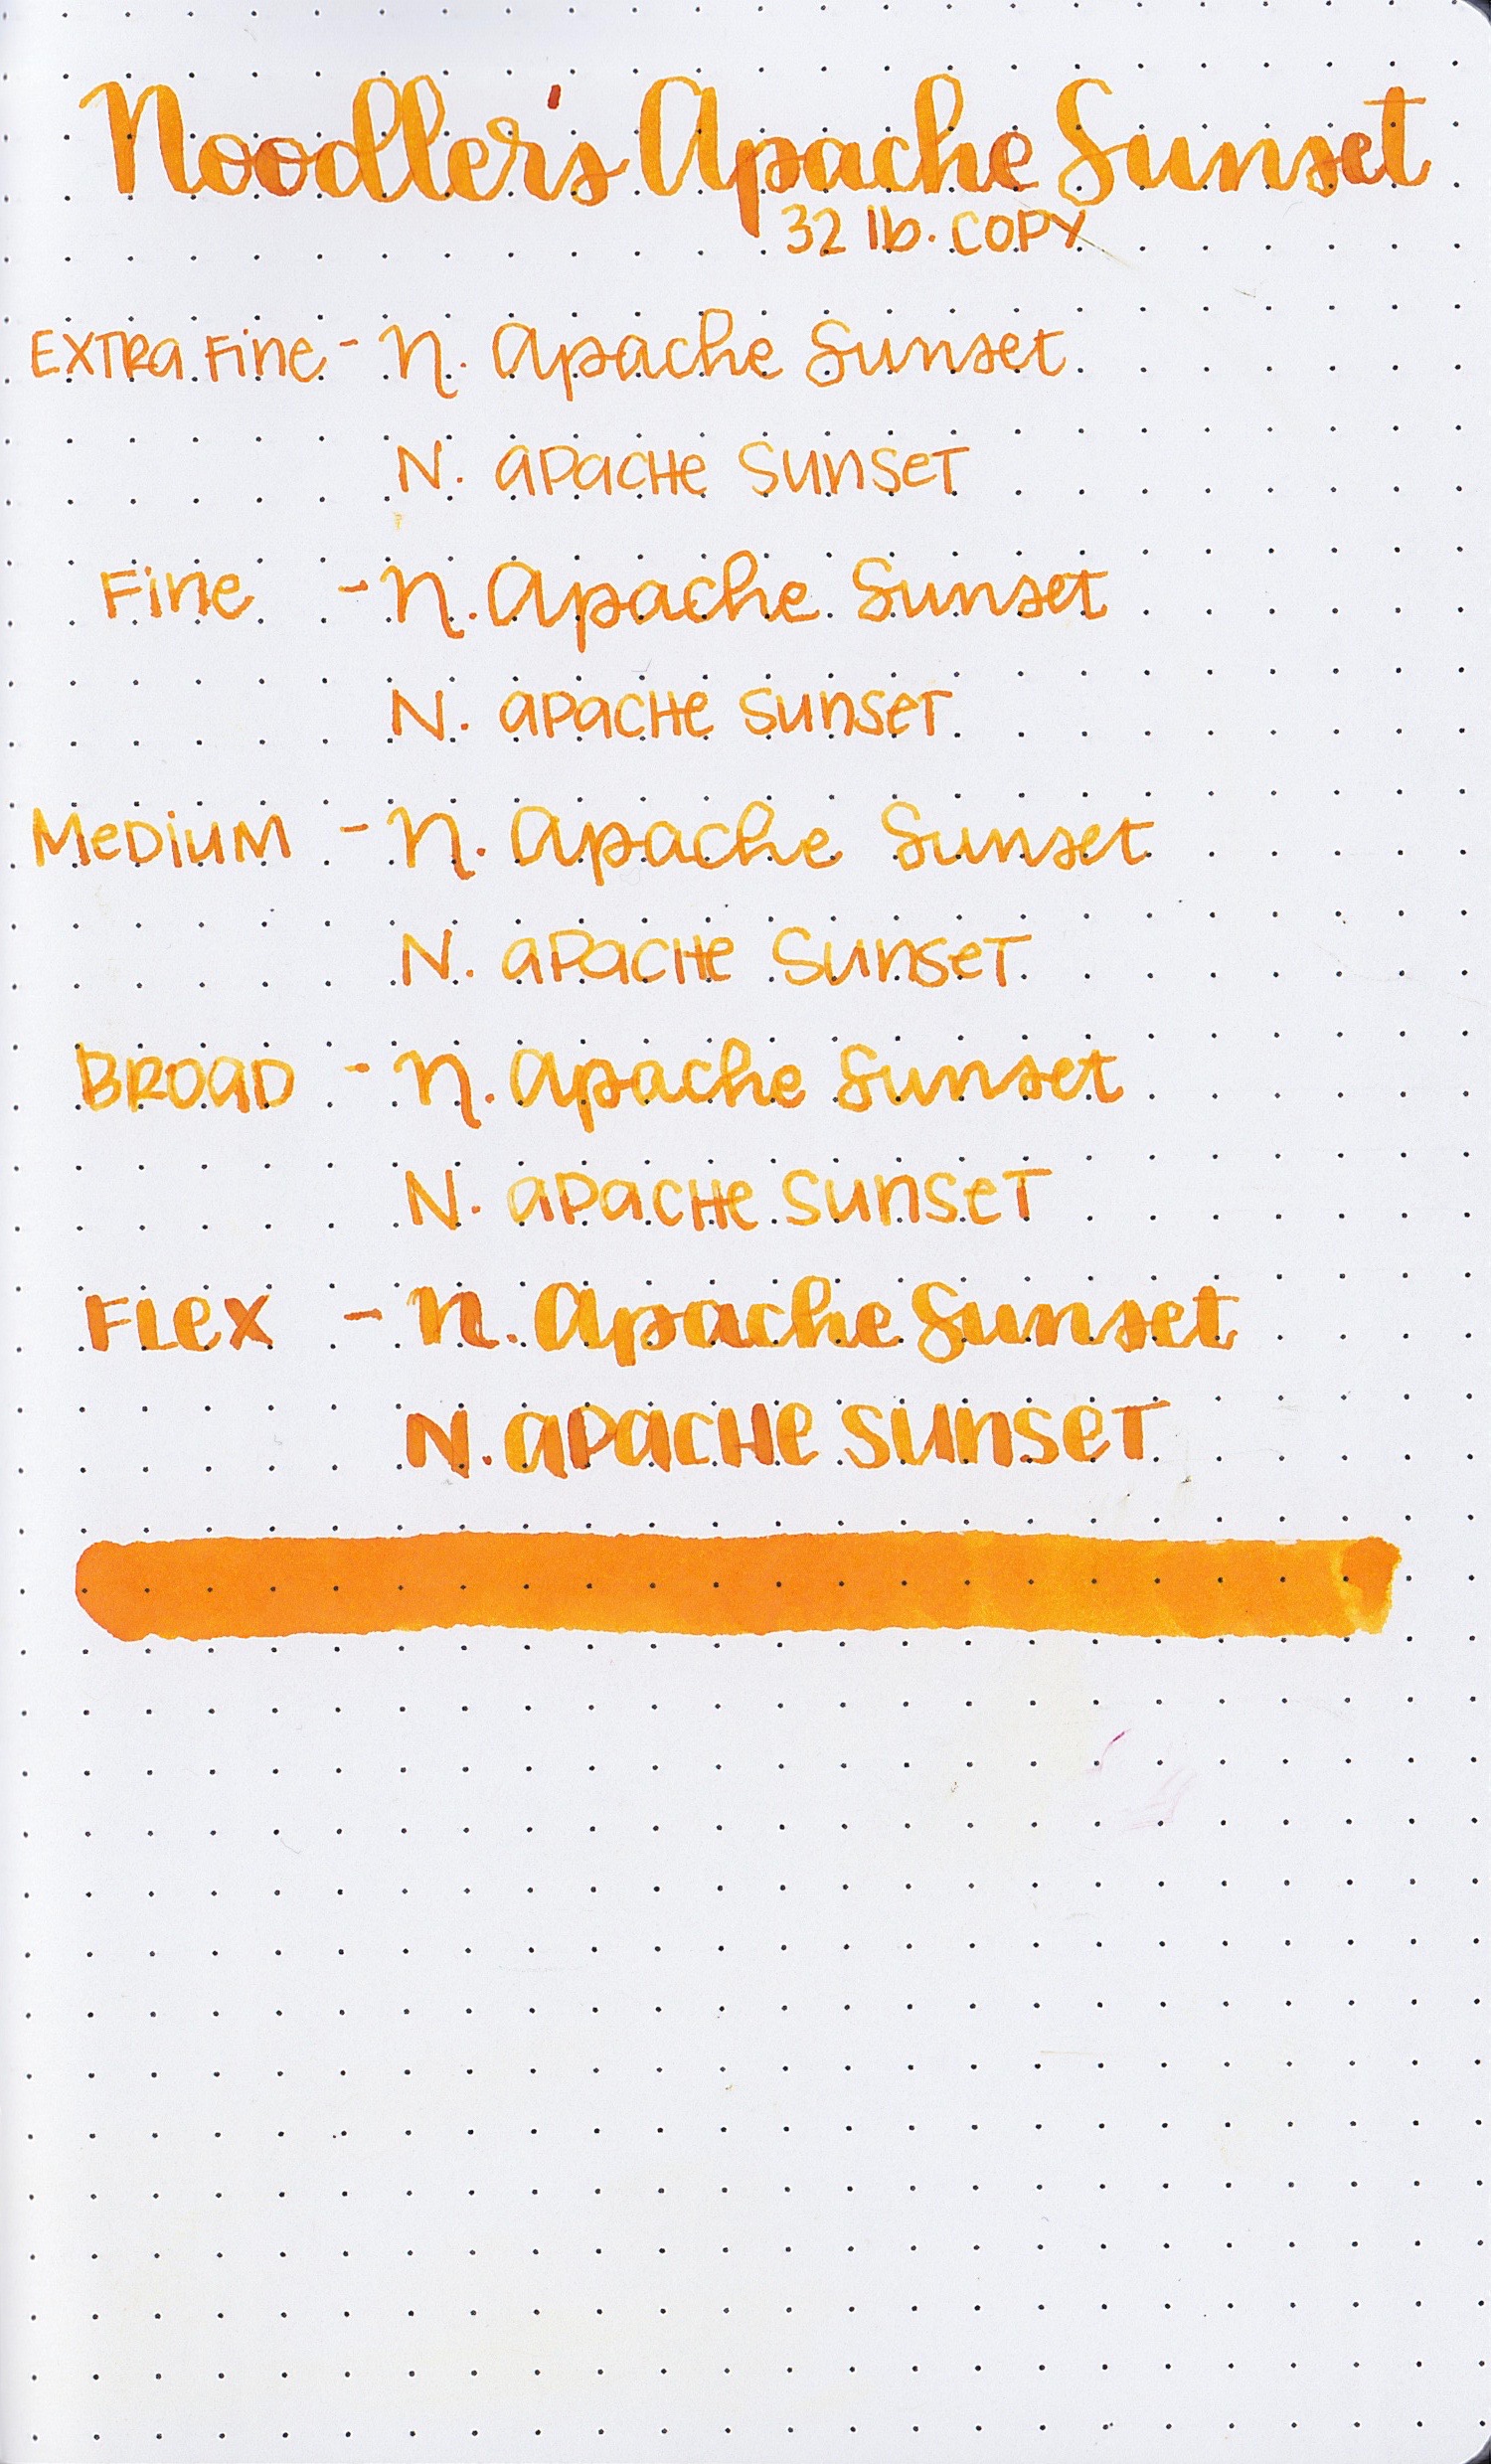 Noodler's Apache Sunset
32 lb. COPY
EXTRA FINE - N. Apache Sunset
N. APACHE SUNSET
FINE - N. Apache Sunset
N. APACHE SUNSET
MEDIUM - N. Apache Sunset
N. APACHE SUNSET
BROAD - N. Apache Sunset
N. APACHE SUNSET
FLEX - N. Apache Sunset
N. APACHE SUNSET